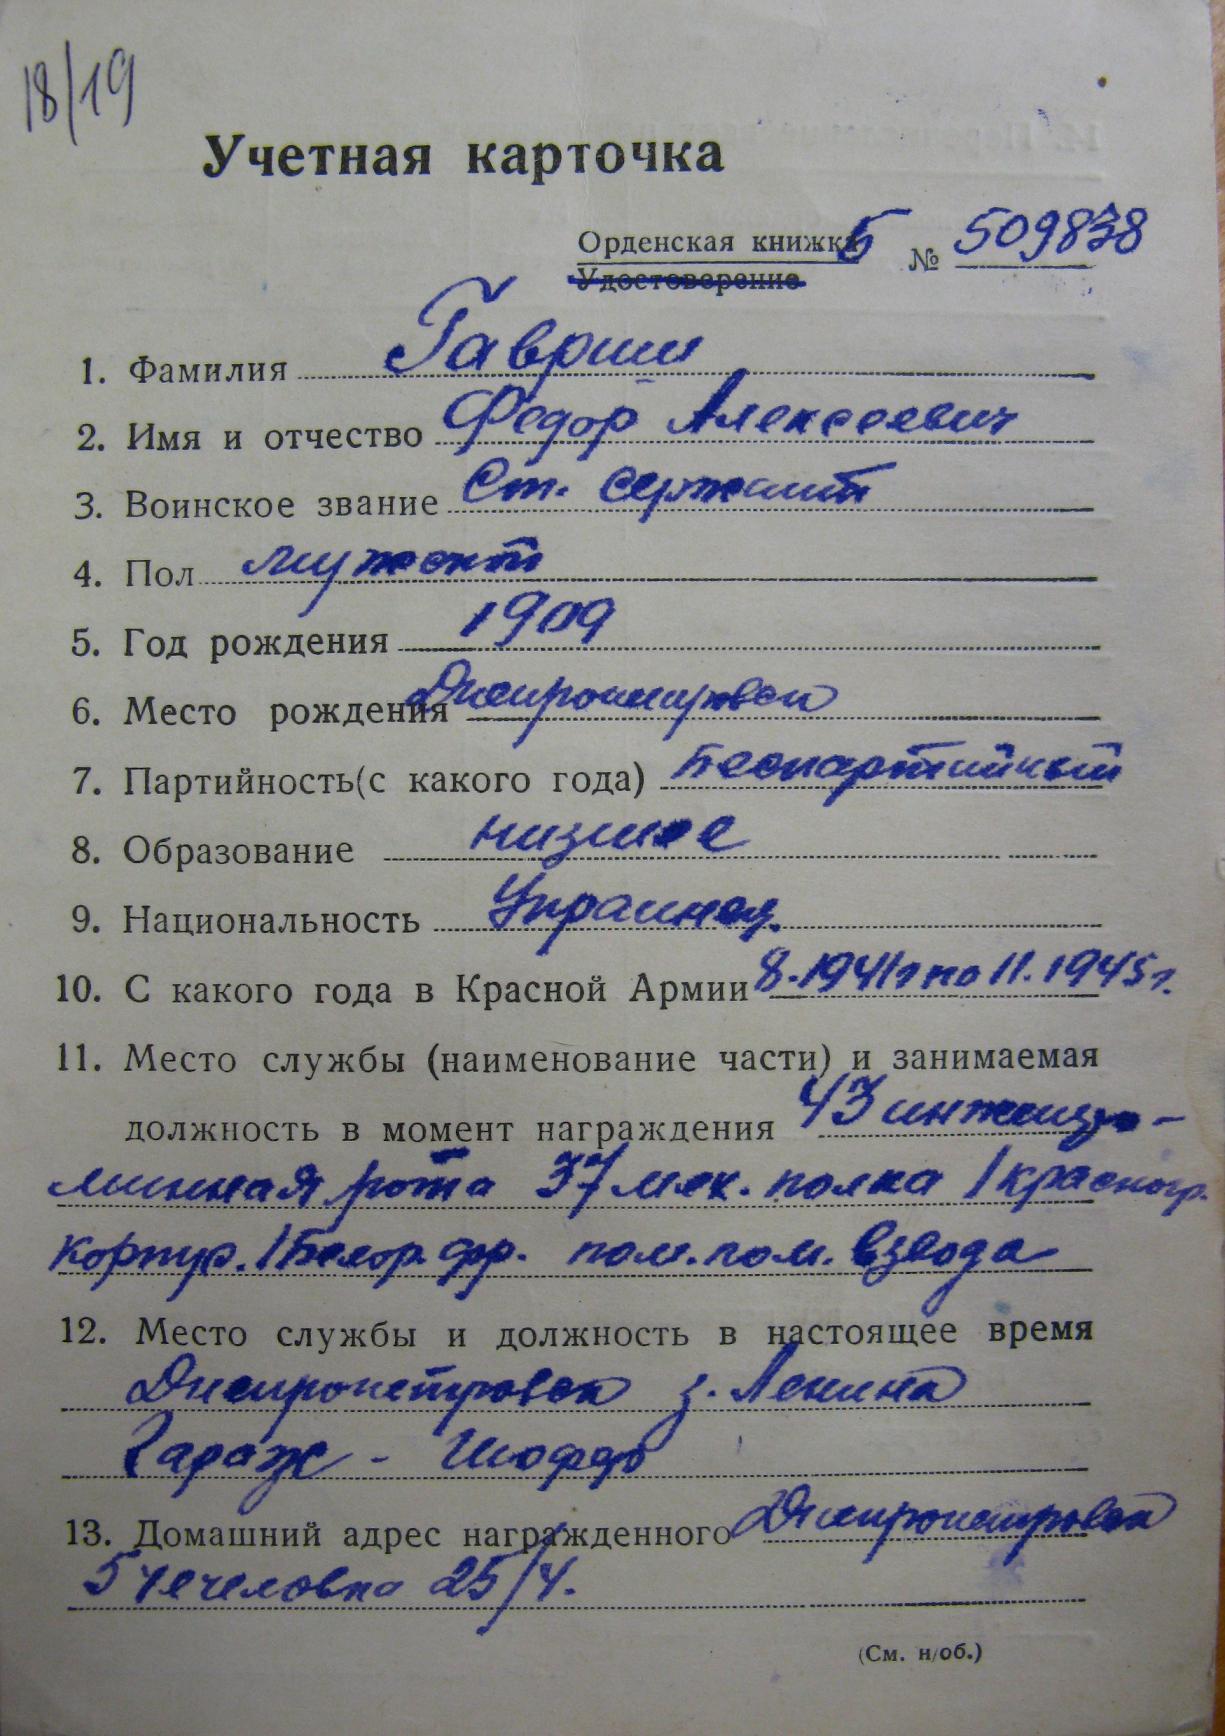 18/19
Учетная карточка
Орденская книжка Б № 509838
Удостоверение
1. Фамилия Гавриш
2. Имя и отчество Федор Алексеевич
3. Воинское звание Ст. сержант
4. Пол мужской
5. Год рождения 1909
6. Место рождения Днепропетровск
7. Партийность (с какого года) беспартийный
8. Образование низшее
9. Национальность Украинец.
10. С какого года в Красной Армии 8.1941г по 11.1945г.
11. Место службы (наименование части) и занимаемая
должность в момент награждения 43
минная рота 37 мех. полка 1 красногр.
корпус. 1 Белор. фр. пом. ком. взвода
12. Место службы и должность в настоящее время
Днепропетровск з. Ленина
Гараж - Шофер
13. Домашний адрес награжденного Днепропетровск
25/4.
(См. н/об.)